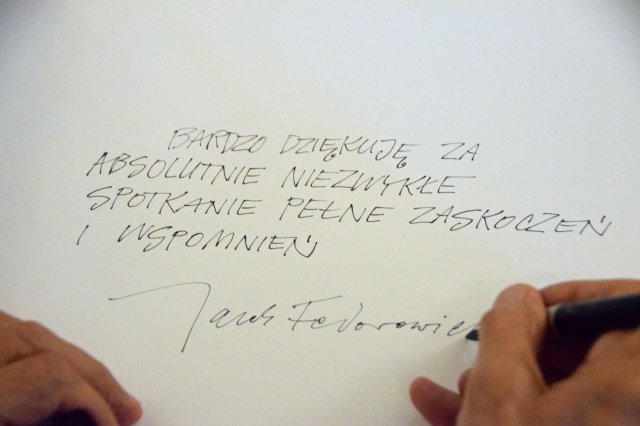 BARDZO DZIĘKUJĘ ZA
ABSOLUTNIE NIEZWYKŁE
SPOTKANIE PEŁNE ZASKOCZEŃ
I WSPOMNIEŃ
Jacek Fedorowic